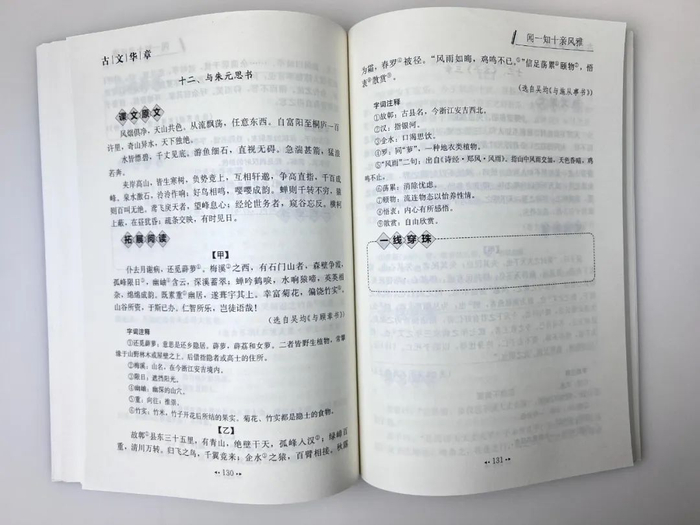 古文华章
十二、与朱元思书
课文原文
风烟俱净，天山共色。从流飘荡，任意东西。自富阳至桐庐一百
许里，奇山异水，天下独绝。
水皆缥碧，千丈见底。游鱼细石，直视无碍。急湍甚箭，猛浪
若奔。
夹岸高山，皆生寒树，负势竞上，互相轩邈，争高直指，千百成
峰。泉水激石，泠泠作响；好鸟相鸣，嘤嘤成韵。蝉则千转不穷，猿
则百叫无绝。鸢飞戾天者，望峰息心；经纶世务者，窥谷忘反。横柯
上蔽，在昼犹昏；疏条交映，有时见日。
拓展阅读
【甲】
仆去月谢病，还觅薜萝①。梅溪②之西，有石门山者，森壁争霞，
孤峰限日③，幽岫④含云，深溪蓄翠；蝉吟鹤唳，水响猿啼，英英相
杂，绵绵成韵。既素重⑤幽居，遂葺宇其上。幸富菊花，偏饶竹实⑥。
山谷所资，于斯已办。仁智所乐，岂徒语哉！
（选自吴均《与顾章书》）
字词注释
①还觅薜萝：意思是还乡隐居。薜萝，薜荔和女萝。二者皆野生植物，常攀
缘于山野林木或屋壁之上。后借指隐者或高士的住所。
②梅溪：山名，在今浙江安吉境内。
③限日：遮挡阳光。
④幽岫：幽深的山穴。
⑤重：向往；推崇。
⑥竹实：竹米，竹子开花后所结的果实。菊花、竹实都是隐士的食物。
【乙】
故鄣①县东三十五里，有青山，绝壁干天，孤峰入汉②；绿嶂百
重，清川万转。归飞之鸟，千翼竞来；企水③之猿，百臂相接。秋露
130
闻一知十亲风雅
为霜，春罗④被径。“风雨如晦，鸡鸣不已。⑤”信足荡累⑥颐物⑦，悟
衷⑧散赏⑨。
（选自吴均《与施从事书》）
字词注释
①故鄣：古县名，今浙江安吉西北。
②汉：指银河。
③企水：口渴思饮。
④罗：同“萝”，一种地衣类植物。
⑤“风雨”二句：出自《诗经·郑风·风雨》，指山中风雨交加，天色昏暗，鸡
鸣不止。
⑥荡累：消除忧虑。
⑦颐物：流连物态以怡养性情。
⑧悟衷：内心有所感悟。
⑨散赏：自由欣赏。
一线穿珠
131